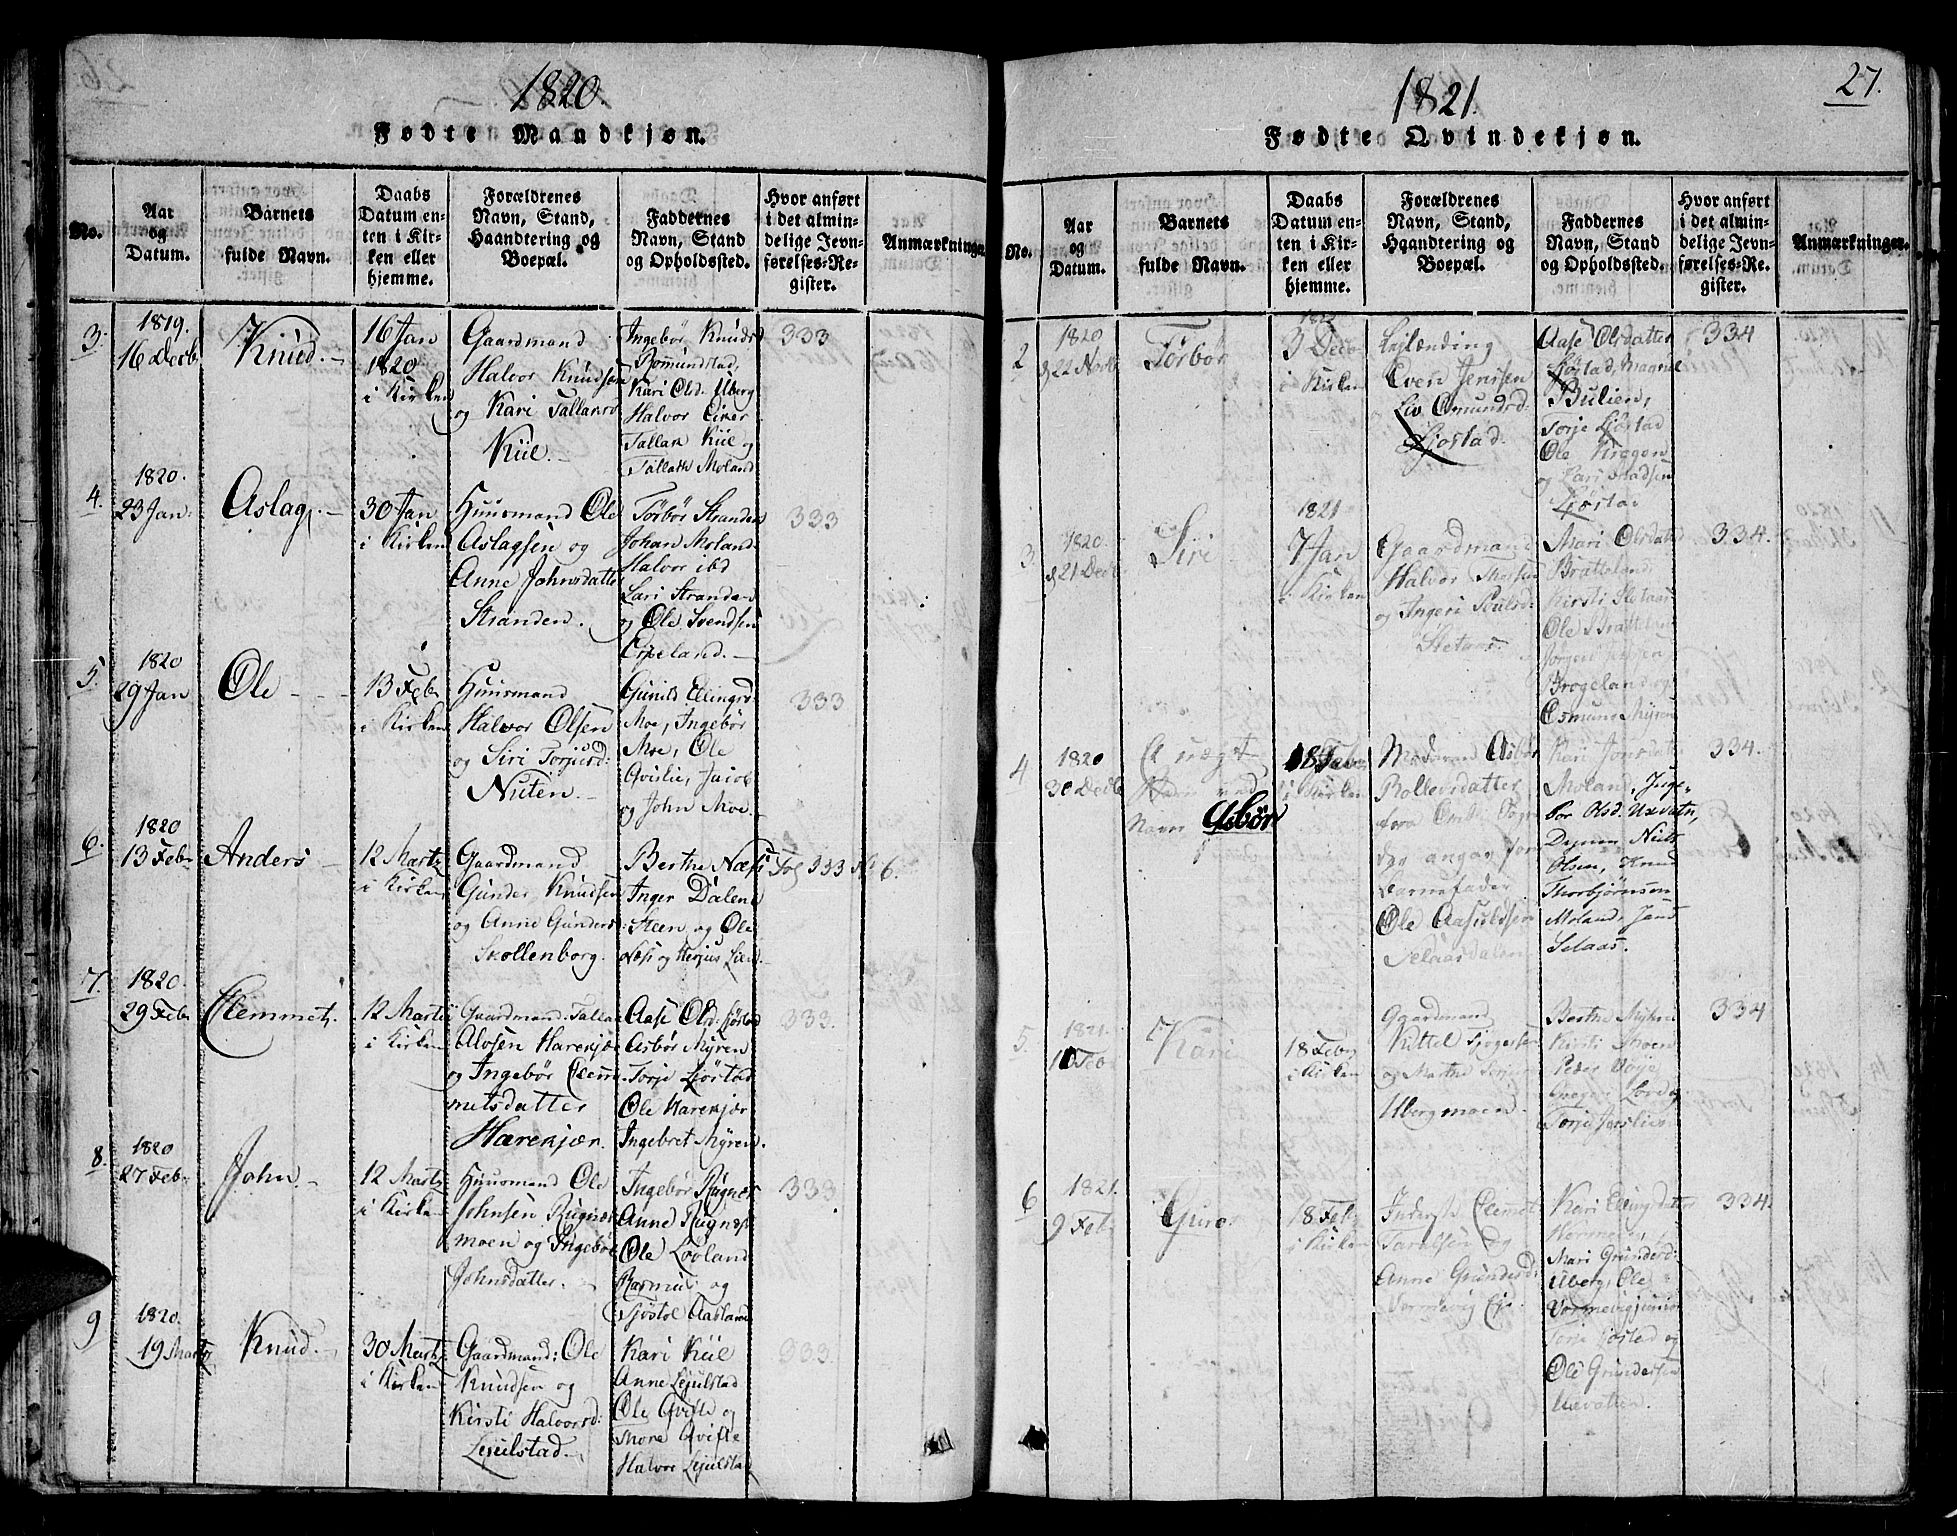 1820.
Fødte Mandkjøn.
No.
Aar
og
Datum.
Barnets
fulde Navn.
Daabs
Datum en-
ten i Kir-
ken eller
hjemme.
Forældrenes
Navn, Stand,
Haandtering og
Boepæl.
Faddernes
Navn, Stand
og Opholdssted.
Hvor anført
i det almin-
delige Jevn-
førelses-Re-
gister.
Anmærkninger.
3.
1819.
16 Decb
Knud.
16 Jan
1820
i Kirken
Gaardmand
Halvor Knudsen
og Kari Tallaksd
Kiil.
Ingebør Knudsd
Romundstad,
Kari Old. Uberg
Halvor Eiker
Tallak Kiil og
Tallak Moland
333
4.
1820.
23 Jan:
Aslag.
30 Jan
i Kirken
Huusmand Ole
Aslagsen og
Anne Johnsdatter
Stranden.
Tørbør Stranden
Johan Moland
Halvor ibd
Lari Stranden
og Ole Svendsen
Espeland.
333
5.
1820
29 Jan
Ole
13 Feb
i Kirken
Huusmand
Halvor Olsen
og Siri Torjusd:
Nuten.
Gunild Ellingsd:
Moe, Ingebør
Moe, Ole
Qvislie, Jacob
og John Moe
333
6.
1820
13 Feb
Anders
12 Marts
i Kirken
Gaardmand
Gunder Knudsen
og Anne Gunders
Skollenborg.
Berthe Næs
Inger Dalene
Steen, og Ole
Næs og Herjus Lien
Fol 333 No 6.
7.
1820.
29 Feb
Clemmet.
12 Marts
i Kirken
Gaardmand Tallak
Alvsen Harekjær
og Ingebør Clem
metsdatter
Harekjær.
Aase Old: Løstad
Asbør Myren
Torje Ljøstad
Ole Harekjær
Ingebret Myren.
333.
8.
1820
27 Feb
John.
12 Marts
i Kirken
Huusmand Ole
Johnsen Rugnæs
moen og Ingebør
Johnsdatter.
Ingebør Rugnæs
Anne Rugnæs
Ole Lovland
Rasmus og
Sjøstøl Aasland
333
9
1820.
19 Marts
Knud.
30 Marts
i Kirken
Gaardmand: Ole
Knudsen og
Kirsti Halvorsd:
Lejulstad
Kari Kiil
Anne Lejulstad
Ole Qvifte og
Thore Qvifte
Halvor Lejulstad
333.
1821.
27.
Fødte Qvindekjøn.
No.
Aar
og
Datum.
Barnets
fulde Navn.
Daabs
Datum en-
ten i Kir-
ken eller
hjemme.
Forældrenes
Navn, Stand,
Haandtering og
Boepæl.
Faddernes
Navn, Stand
og Opholdssted.
Hvor anført
i det almin-
delige Jevn-
førelses-Re-
gister.
Anmærkninger.
2
1820
d 22 Novb
Tørbør
3 Decb
i Kirken
Leilænding
Even Jensen
Liv Omundsd
Ljøstad.
Aase Olsdatter
Ljøstad, Magnil
Bulien,
Torje Ljøstad
Ole
og Lars Madsen
Ljøstad
334
3.
1820.
d 21 Decb
Siri
1821
7 Jan
i Kirken
Gaardmand
Halvor
og Ingeri Poulsd:
Sletaas.
Mari Olsdatter
Bratteland
Kirsti Sletaas
Ole Bratteland
Frøgeland og
Osmund Myren
334.
4
1820
30 Decb
Navn Asbør
18 Feb
i Kirken
Asbør
Rollevsdatter
fra
dag angav for
Barnefader
Ole Aasuldsen
Selaasdalen
Kari Jonsdat
Moland, Inge-
bor Olsd. Uævatn,
Degnen Niels
Olsen, Knud
Thorbjørnsen
Moland, Jens
Selaas.
334.
5.
1821.
1 Feb
Kari
18 Feb
i Kirken
Gaardmand
Kittel
og Marthe
Ubergsmoen.
Berthe Myhre
Kirsti Moen
Peder Bøye
334
6
1821.
9 Feb
Guro
18 Feb
i Kirken
Inderst Clemet
Taralsen og
Anne Gundersd:
Vormevig Eje.
Kari Ellingsdatter
Mari Gundersd:
Uberg, Ole
Vormevig junior
Torje Ljøstad og
Ole Gundersen
Uævatten.
334.